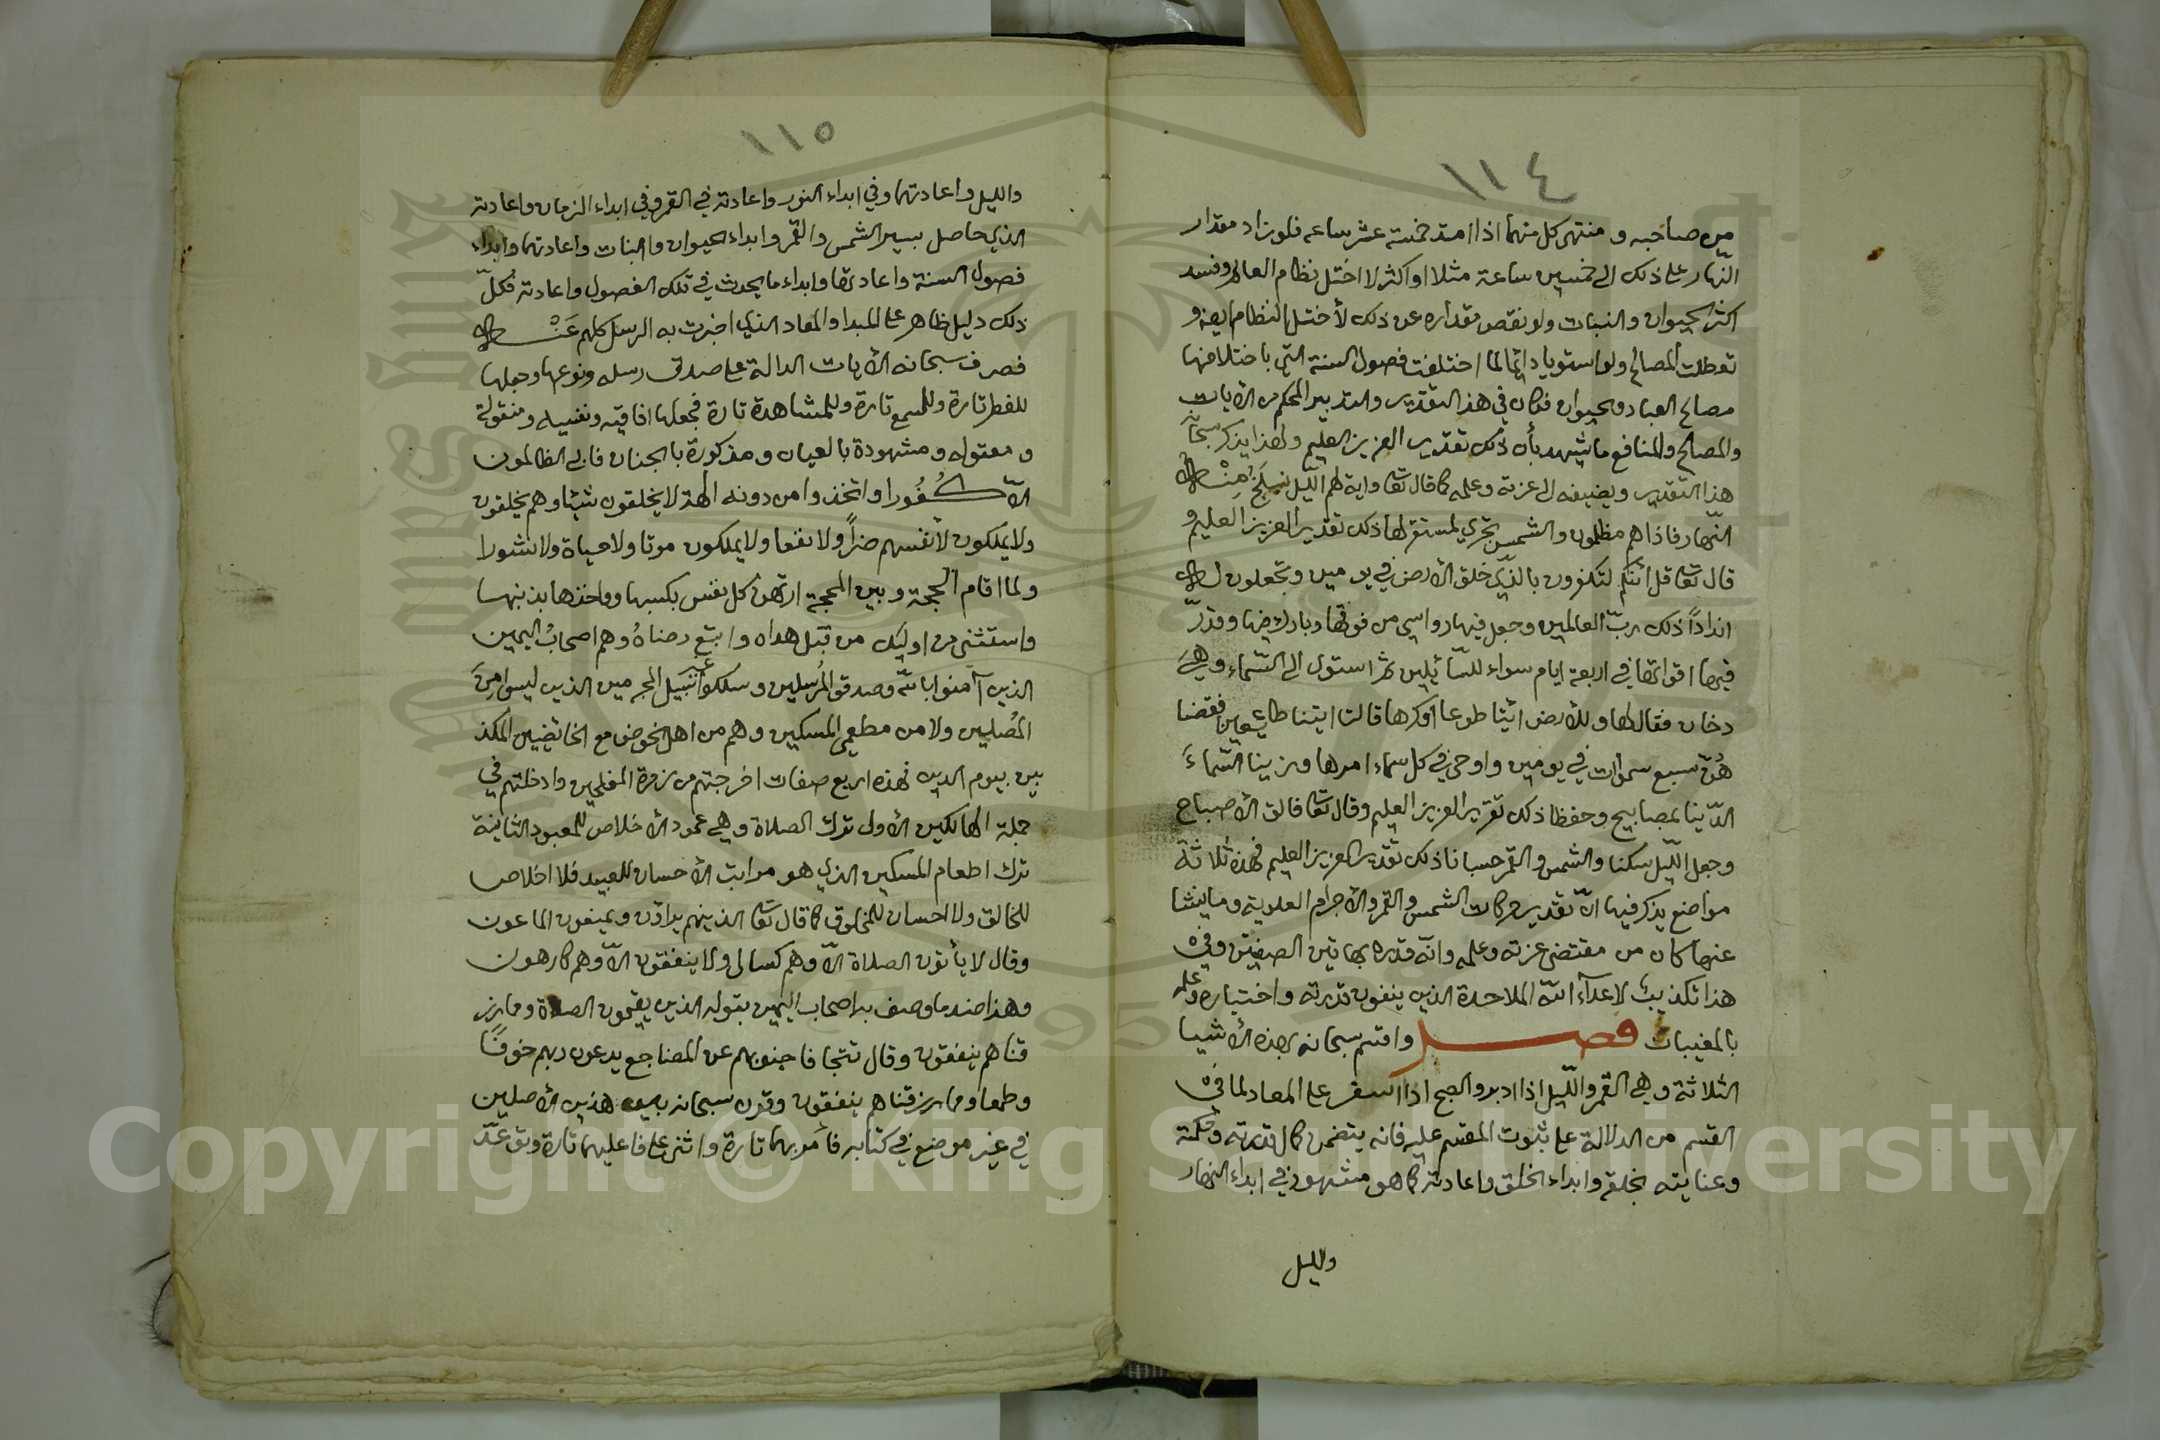 ١١٤
من صاحبه ومنتهى كل منهما اذا امتد خمسة عشر ساعه فلو زاد مقدار
النهار على ذلك الى خمسين ساعة مثلا او اكثر لاختل نظام العالم وفسد
اكثر الحيوان والنبات ولو نقص مقداره عن ذلك لأختل النظام ايضا و
تعطلت المصالح ولو استويا دائما لما اختلفت فصول السنة التى باختلافها
مصالح العباد والحيوان فكان في هذا التقدير والتدبير المحكم من الآيات
والمصالح والمنافع ما يشهد بأن ذلك تقدير العزيز العليم ولهذا يذكر سبحانه
هذا التقدير ويضيفه الى عزته وعلمه كما قال تعا واية لهم الليل نسلخ منه
النهار فاذاهم مظلمون والشمس تجري لمستقر لها ذلك تقدير العزيز العليم و
قال تعا قل ائنكم لتكفرون بالذي خلق الأرض في يومين وتجعلون له
انداداً ذلك ربّ العالمين وجعل فيها رواسي من فوقها وبارك فيها وقدّر
فيها اقواتها في اربعة ايام سواء للسائلين ثم استوى الى السّماء وهِيَ
دخان فقال لها وللأرض ائتيا طوعا او كرها قالتا اتينا طائعين فقضا
هُنّ سبع سموات في يومين واوحى في كل سماء امرها وزينا السّماءَ
الدّنيا بمصابيح وحفظا ذلك تقدير العزيز العليم وقال تعا فالق الأصباح
وجعل الليل سكنا والشمس والقمر حسبانا ذلك تقدير العزيز العليم فهذه ثلاثة
مواضع يذكر فيها انّ تقدير حركات الشمس والقمر والأجرام العلوية وما ينشا
عنها كان من مقتضى عزته وعلمه وانّه قدره بهاتين الصفتين وفي
هذا تكذيبٌ لاعدآء الله الملاحدة الذين ينفون قدرته واختياره وعلمه
بالمغيبات فصــل واقسم سبحانه بهذه الأشيا
الثلاثة وهي القمر واللّيل اذا ادبر والصبح اذا اسفر على المعاد لما في
القسم من الدلالة على ثبوت المقسم عليه فانه يتضمن كمال قدرته وحكمته
وعنايته بخلقه وابداء الخلق واعادته كما هو مشهور في ابداء النهار
والليل
١١٥
والليل واعادتهما وفي ابداء النور واعادته في القمر وفي ابداء الزمان واعادته
الذي حاصل بسير الشمس والقمر وابداء الحيوان والنبات واعادتهما وابداء
فصول السنة واعادتها وابداء ما يحدث في تلك الفصول واعادته فكلّ
ذلك دليل ظاهر على المبدا والمعاد الذي اخبرت به الرسل كلهم عَنْه
فصرف سبحانه الأيات الدالة على صدق رسله ونوعها وجعلها
للفطر تارة وللسمع تارة وللمشاهدة تارة فجعلها افاقيه ونفسيه ومنقولة
ومعقوله ومشهودة بالعيان ومذكورة بالجنان فابى الظالمون
الّا كُفُورا واتخذوا من دونه الهة لا يخلقون شيئا وهم يخلقون
ولا يملكون لأنفسهم ضراً ولا نفعا ولا يملكون موتا ولا حياة ولا نشورا
ولما اقام الحجة وبين المحجة ارتهن كل نفس بكسبها وواخذها بذنبها
واستثنى من اوليك من قبل هداه واتبع رضاهُ وهم اصحابُ اليمين
الذين آمنوا بالله وصدقو المُرسلين وسلكوا غير سبيل المجرمين الذين ليسوا مِنَ
المُصلين ولا من مطعمي المسكين وهم من اهل الخوض مع الخائضين المكذ
بين بيوم الدين فهذه اربع صفات اخرجتهم من زمرة المفلحين وادخلتهم في
جملة الهالكين الأول ترك الصلاة وهي عمود الأخلاص للمعبود الثانية
ترك اطعام المسكين الذي هو مراتب الأحسان للعبيد فلا اخلاص
للخالق ولا احسان للمخلوق كما قال تعا الذينهم يراؤن ويمنعون الماعون
وقال لا يأتون الصلاة الّا وهم كسالى ولا ينفقون الّا وهم كارهون
وهذا ضد ما وصف به اصحاب اليمين بقوله الذين يقيمون الصلاة ومما رز
قناهم ينفقون وقال تتجافا جنوبهم عن المضاجع يدعون ربهم خوفًا
وطمعا ومما رزقناهم ينفقون وقرن سبحانه بين هذين الأصلين
في غير موضع في كتابه فأمر بهما تارة واثنى على فاعليهما تارة وتوعّد
Copyright © King Saud University